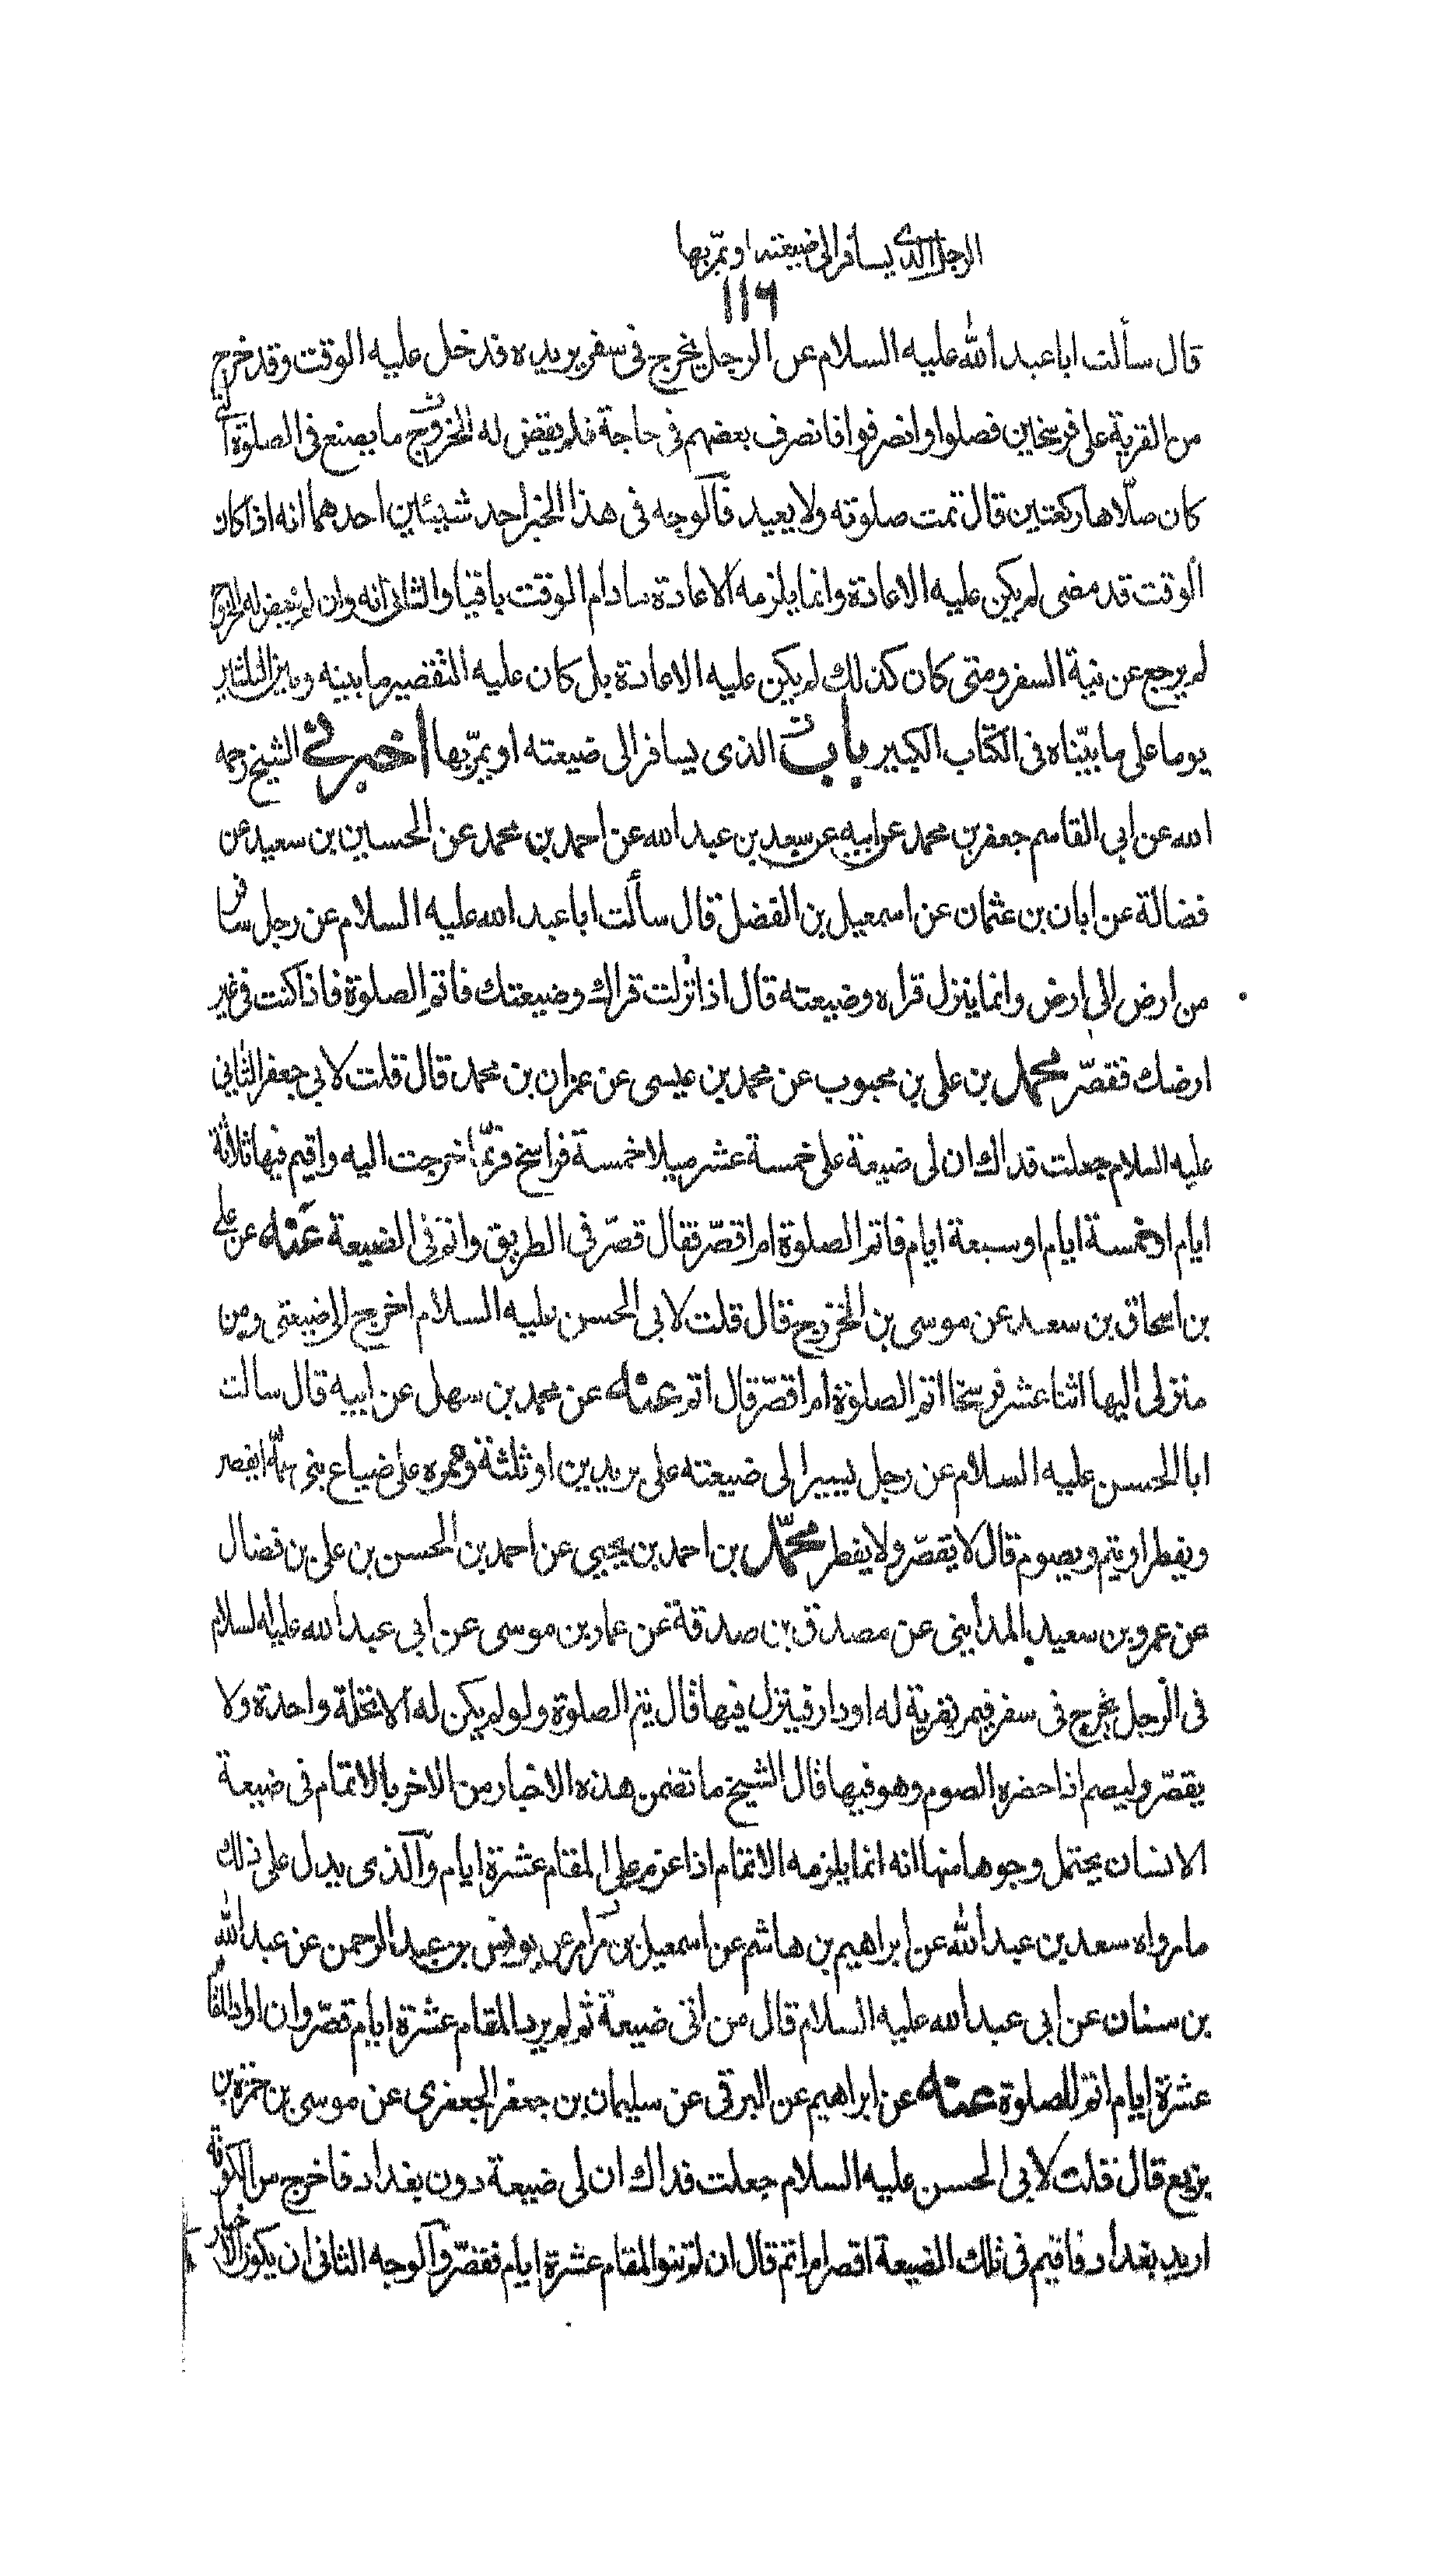 الرجل الذى يسافر الى ضيعته او يمرّ بها
١١٦
قال سألت ابا عبد الله عليه السلام عن الرجل يخرج فى سفر يريده فدخل عليه الوقت وقد خرج
من القرية على فرسخين فصلوا وانصرفوا فانصرف بعضهم فى حاجة فلم يقض له الخروج ما يصنع فى الصلوة التى
كان صلّاها ركعتين قال تمت صلوته ولا يعيد فالوجه فى هذا الخبر احد شيئين احدهما انه اذا كان
الوقت قد مضى لم يكن عليه الاعادة وانما يلزمه الاعادة مادام الوقت باقيا والثانى انه وان لم يقض له الخروج
لم يرجع عن نية السفر ومتى كان كذلك لم يكن عليه الاعادة بل كان عليه التقصير ما بينه وبين الثلثين
يوما على ما بيّناه فى الكتاب الكبير باب الذى يسافر الى ضيعته او يمرّ بها اخبرنى الشيخ رحمه
الله عن ابى القاسم جعفر بن محمد عن ابيه عن سعد بن عبد الله عن احمد بن محمد عن الحسين بن سعيد عن
فضالة عن ابان بن عثمان عن اسمعيل بن الفضل قال سألت ابا عبد الله عليه السلام عن رجل سافر
من ارض الى ارض وانما ينزل قراه وضيعته قال اذا نزلت قراك وضيعتك فاتم الصلوة فاذا كنت فى غير
ارضك فقصّر محمد بن على بن محبوب عن محمد بن عيسى عن عمران بن محمد قال قلت لابى جعفر الثانى
عليه السلام جعلت فداك ان لى ضيعة على خمسة عشر ميلا خمسة فراسخ فربّما خرجت اليه واقيم فيها ثلاثة
ايام او خمسة ايام او سبعة ايام فاتم الصلوة ام اقصّر فقال قصّر فى الطريق واتم فى الضيعة عنه عن على
بن اسحاق بن سعد عن موسى بن الخزرج قال قلت لابى الحسن عليه السلام اخرج الى ضيعتى ومن
منزلى اليها اثنا عشر فرسخا اتم الصلوة ام اقصّر قال اتم عنه عن محمد بن سهل عن ابيه قال سالت
ابا الحسن عليه السلام عن رجل يسير الى ضيعته على بريدين او ثلثة وممره على ضياع بنى عمّه ايقصر
ويفطر او يتم ويصوم قال لا يقصّر ولا يفطر محمّد بن احمد بن يحيى عن احمد بن الحسن بن على بن فضال
عن عمرو بن سعيد المداينى عن مصدق بن صدقة عن عمار بن موسى عن ابى عبد الله عليه السلام
فى الرجل يخرج فى سفر فيمر بقرية له او دار فينزل فيها قال يتم الصلوة ولو لم يكن له الا نخلة واحدة ولا
يقصّر وليصم اذا حضره الصوم وهو فيها قال الشيخ ما تضمن هذه الاخبار من الاخر بالاتمام فى ضيعة
الانسان يحتمل وجوها منها انه انما يلزمه الاتمام اذا عزم على المقام عشرة ايام والذى يدل على ذلك
ما رواه سعد بن عبد الله عن ابراهيم بن هاشم عن اسمعيل بن مرار عن يونس بن عبد الرحمن عن عبد الله
بن سنان عن ابى عبد الله عليه السلام قال من اتى ضيعة ثم لم يرد المقام عشرة ايام قصّر وان اراد المقام
عشرة ايام اتم الصلوة عنه عن ابراهيم عن البرقى عن سليمان بن جعفر الجعفرى عن موسى بن حمزة بن
بزيع قال قلت لابى الحسن عليه السلام جعلت فداك ان لى ضيعة دون بغداد فاخرج من الكوفة
اريد بغداد فاقيم فى تلك الضيعة اقصر ام اتم قال ان لم تنو المقام عشرة ايام فقصّر والوجه الثانى ان يكون الاخبار